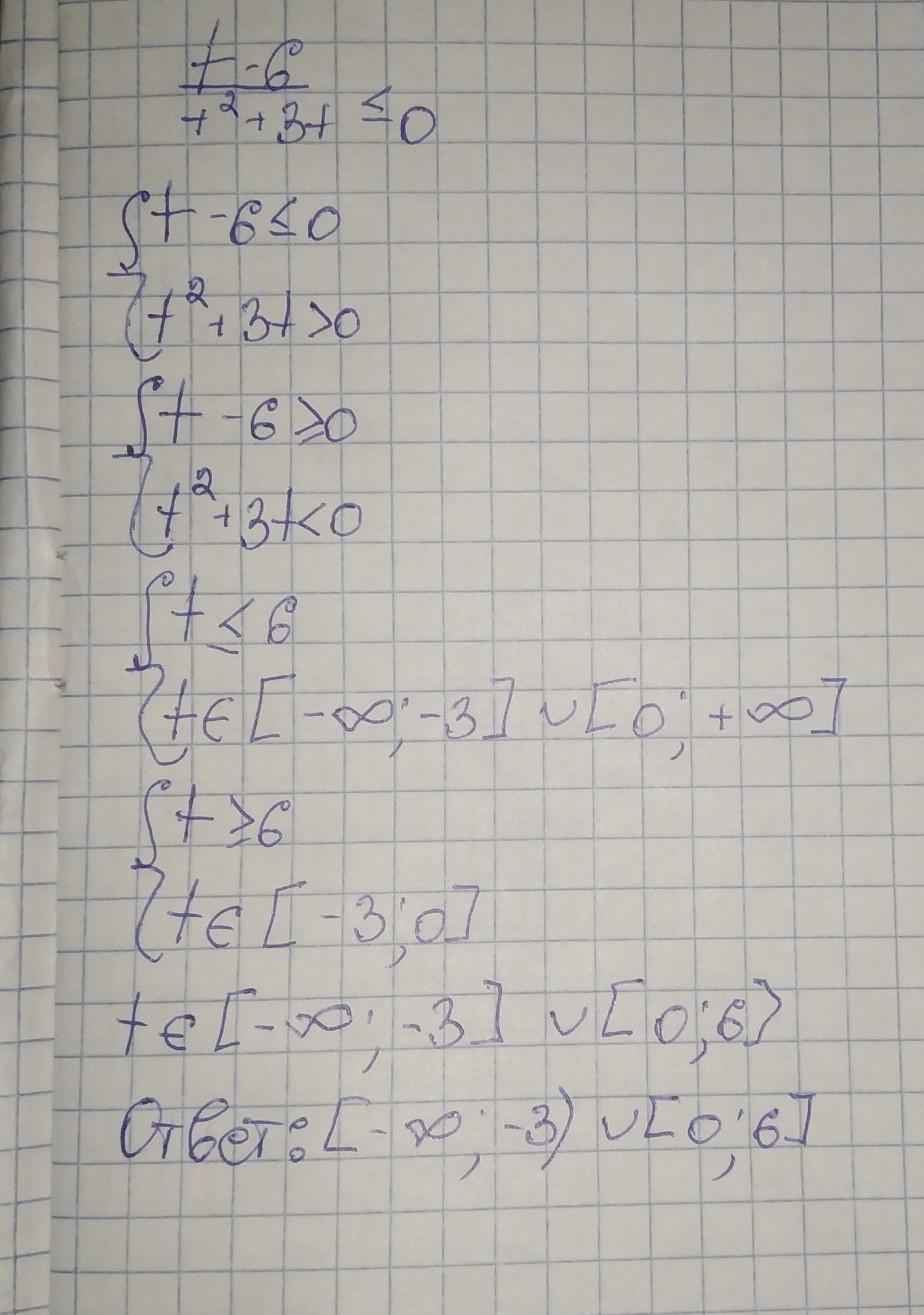 t - 6
t² + 3t ≤ 0
t - 6 ≤ 0
t² + 3t > 0
t - 6 ≥ 0
t² + 3t < 0
t ≤ 6
t ∈ [-∞; -3] ∪ [0; +∞]
t ≥ 6
t ∈ [-3; 0]
t ∈ [-∞; -3] ∪ [0; 6)
Ответ: [-∞; -3) ∪ [0; 6]